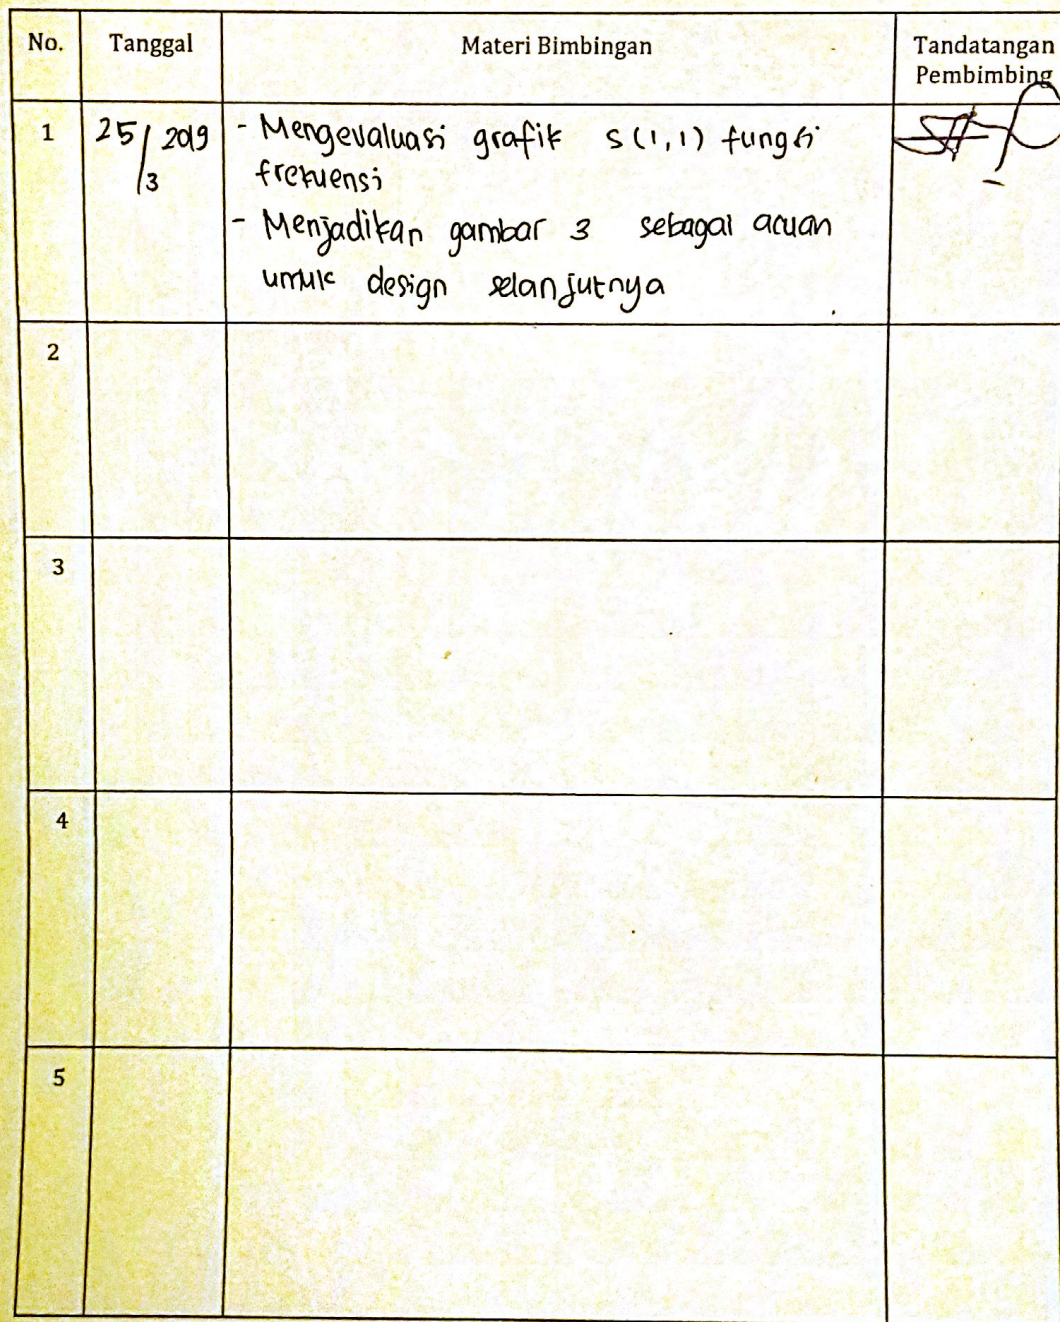 No. Tanggal Materi Bimbingan Tandatangan
Pembimbing
1 25/3 2019 - Mengevaluasi grafik S(1,1) fungsi
frekuensi
- Menjadikan gambar 3 sebagai acuan
untuk design selanjutnya
2
3
4
5